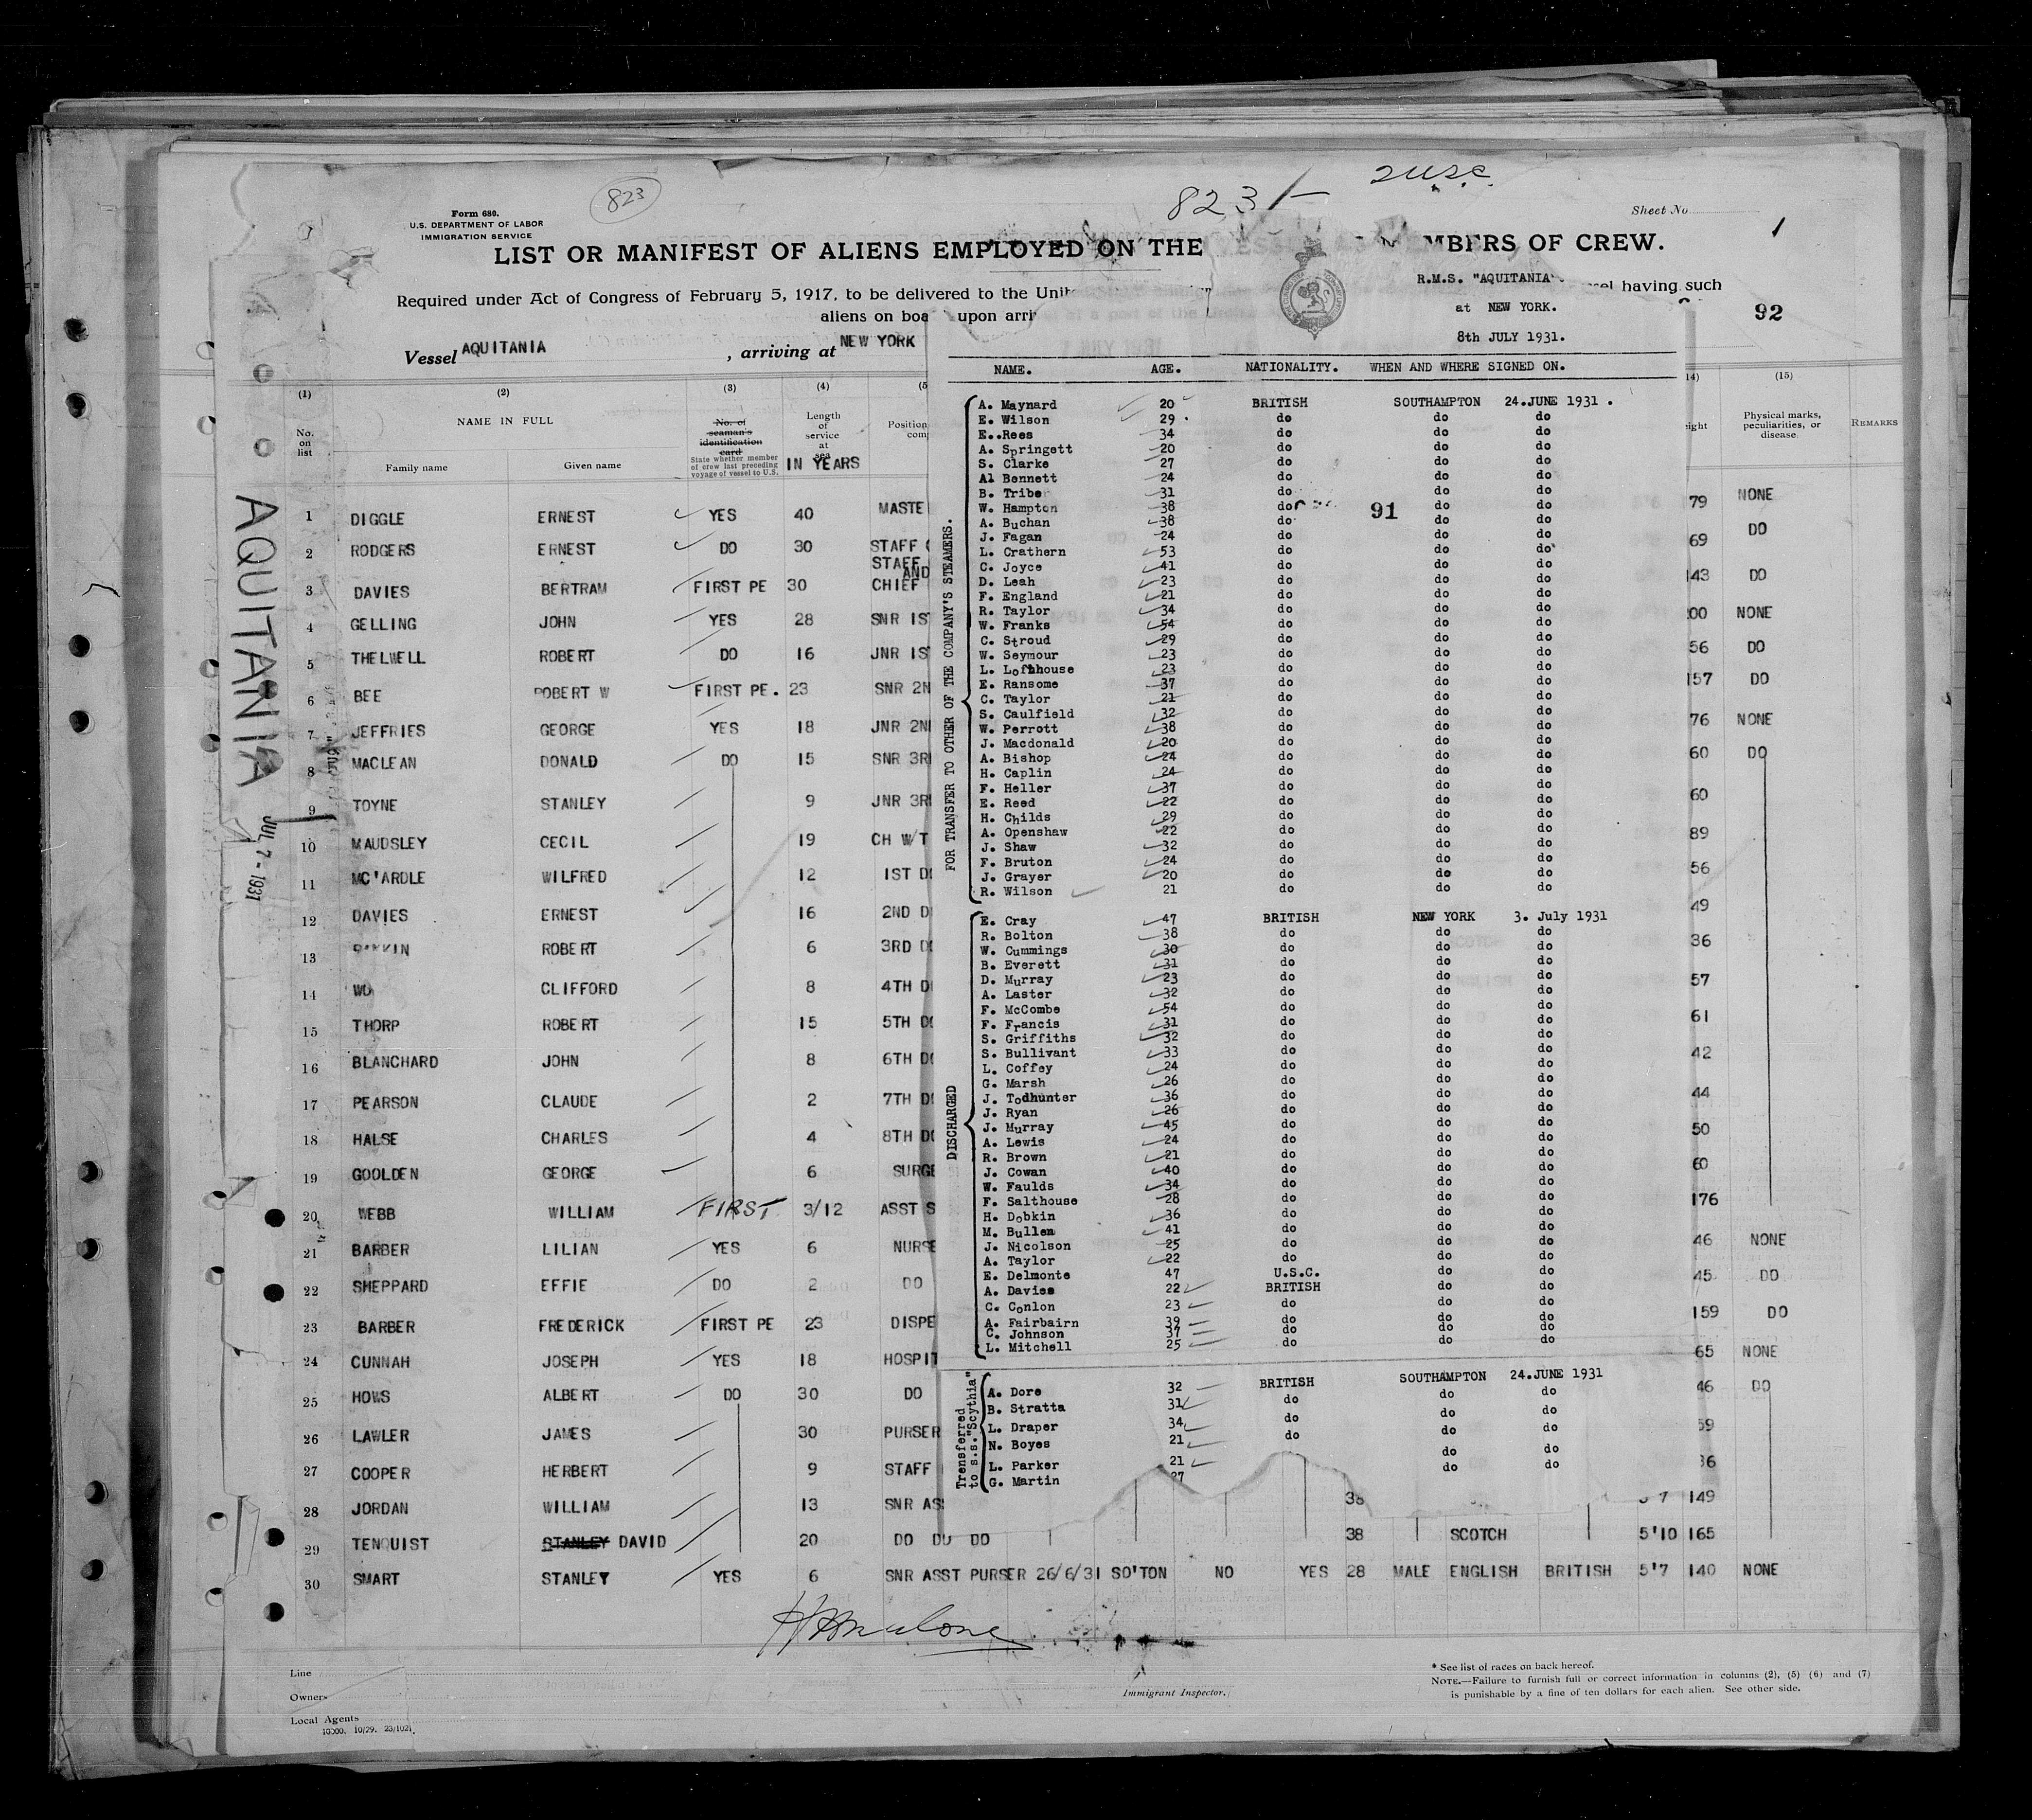 823
8231
2 u.s.c.
Form 680.
U.S. DEPARTMENT OF LABOR
IMMIGRATION SERVICE
Sheet No.
1
LIST OR MANIFEST OF ALIENS EMPLOYED ON THE MBERS OF CREW.
Required under Act of Congress of February 5, 1917, to be delivered to the Unit having such
aliens on boa upon arri
Vessel AQUITANIA , arriving at NEW YORK
92
AQUITANIA
JUL 7 - 1931
(1) (2) (3) (4) (5 14) (15)
No. on list
NAME IN FULL
Family name Given name
No. of seaman's identification card
State whether member of crew last preceding voyage of vessel to U.S.
Length of service at sea
IN YEARS
Position
Physical marks, peculiarities, or disease
REMARKS
1 DIGGLE ERNEST YES 40 MASTE 79 NONE
2 RODGERS ERNEST DO 30 STAFF 69 DO
STAFF
AND
3 DAVIES BERTRAM FIRST PE 30 CHIEF 143 DO
4 GELLING JOHN YES 28 SNR 1S 200 NONE
5 THELWELL ROBERT DO 16 JNR 1S 56 DO
6 BEE ROBERT W FIRST PE. 23 SNR 2N 157 DO
7 JEFFRIES GEORGE YES 18 JNR 2N 76 NONE
8 MACLEAN DONALD DO 15 SNR 3R 60 DO
9 TOYNE STANLEY 9 JNR 3R 60
10 MAUDSLEY CECIL 19 CH W/T 89
11 MC'ARDLE WILFRED 12 1ST D 56
12 DAVIES ERNEST 16 2ND D 49
13 ROBERT 6 3RD D 36
14 WO CLIFFORD 8 4TH D 57
15 THORP ROBERT 15 5TH D 61
16 BLANCHARD JOHN 8 6TH D 42
17 PEARSON CLAUDE 2 7TH D 44
18 HALSE CHARLES 4 8TH D 50
19 GOOLDEN GEORGE 6 SURGE 60
20 WEBB WILLIAM FIRST 3/12 ASST S 176
21 BARBER LILIAN YES 6 NURSE 46 NONE
22 SHEPPARD EFFIE DO 2 DO 45 DO
23 BARBER FREDERICK FIRST PE 23 DISPE 159 DO
24 CUNNAH JOSEPH YES 18 HOSPIT 65 NONE
25 HOWS ALBERT DO 30 DO 46 DO
26 LAWLER JAMES 30 PURSER 59
27 COOPER HERBERT 9 STAFF 36
28 JORDAN WILLIAM 13 SNR AS 38 149
29 TENQUIST STANLEY DAVID 20 DO DO DO 38 SCOTCH 5'10 165
30 SMART STANLEY YES 6 SNR ASST PURSER 26/6/31 SO'TON NO YES 28 MALE ENGLISH BRITISH 5'7 140 NONE
R.M.S. "AQUITANIA".
at NEW YORK.
8th JULY 1931.
NAME. AGE. NATIONALITY. WHEN AND WHERE SIGNED ON.
FOR TRANSFER TO OTHER OF THE COMPANY'S STEAMERS.
A. Maynard 20 BRITISH SOUTHAMPTON 24.JUNE 1931.
E. Wilson 29 do do do
E..Rees 34 do do do
A. Springett 20 do do do
S. Clarke 27 do do do
Al Bennett 24 do do do
B. Tribe 31 do do do
W. Hampton 38 do 91 do do
A. Buchan 38 do do do
J. Fagan 24 do do do
L. Crathern 53 do do do
C. Joyce 41 do do do
D. Leah 23 do do do
F. England 21 do do do
R. Taylor 34 do do do
W. Franks 54 do do do
C. Stroud 29 do do do
W. Seymour 23 do do do
L. Lofthouse 23 do do do
E. Ransome 37 do do do
C. Taylor 21 do do do
S. Caulfield 32 do do do
W. Perrott 38 do do do
J. Macdonald 20 do do do
A. Bishop 24 do do do
H. Caplin 24 do do do
F. Heller 37 do do do
E. Reed 22 do do do
H. Childs 29 do do do
A. Openshaw 22 do do do
J. Shaw 32 do do do
F. Bruton 24 do do do
J. Grayer 20 do do do
R. Wilson 21 do do do
DISCHARGED
E. Cray 47 BRITISH NEW YORK 3. July 1931
R. Bolton 38 do do do
W. Cummings 30 do do do
B. Everett 31 do do do
D. Murray 23 do do do
A. Laster 32 do do do
F. McCombe 54 do do do
F. Francis 31 do do do
S. Griffiths 32 do do do
S. Bullivant 33 do do do
L. Coffey 24 do do do
G. Marsh 26 do do do
J. Todhunter 36 do do do
J. Ryan 26 do do do
J. Murray 45 do do do
A. Lewis 24 do do do
R. Brown 21 do do do
J. Cowan 40 do do do
W. Faulds 34 do do do
F. Salthouse 28 do do do
H. Dobkin 36 do do do
M. Bullen 41 do do do
J. Nicolson 25 do do do
A. Taylor 22 do do do
E. Delmonte 47 U.S.C. do do
A. Davies 22 BRITISH do do
C. Conlon 23 do do do
A. Fairbairn 39 do do do
C. Johnson 37 do do do
L. Mitchell 25 do do do
Transferred to s.s."Scythia"
A. Dore 32 BRITISH SOUTHAMPTON 24.JUNE 1931
B. Stratta 31 do do do
L. Draper 34 do do do
N. Boyes 21 do do do
L. Parker 21 do do
G. Martin 27 do do
H Malone
Immigrant Inspector.
Line
Owners
Local Agents
10000. 10/29. 23/1021.
* See list of races on back hereof.
NOTE.—Failure to furnish full or correct information in columns (2), (5) (6) and (7)
is punishable by a fine of ten dollars for each alien. See other side.